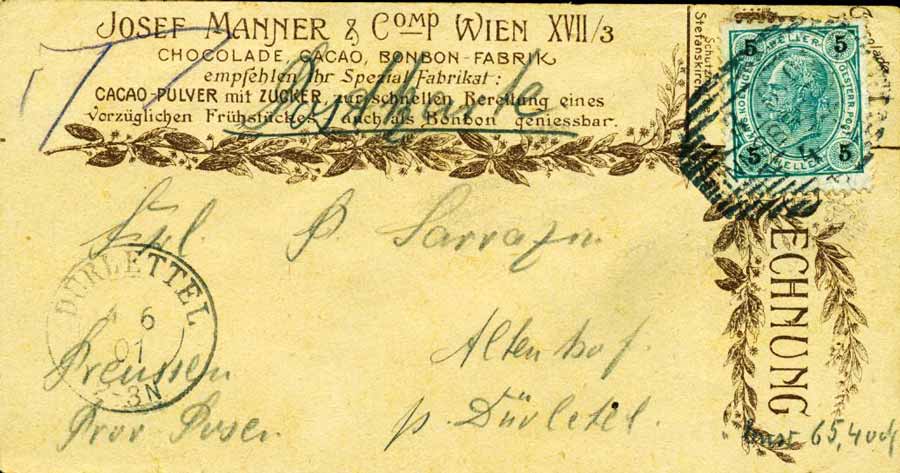 JOSEF MANNER & COMP WIEN XVII/3
CHOCOLADE, CACAO, BONBON-FABRIK
empfehlen Ihr Spezial Fabrikat:
CACAO-PULVER mit ZUCKER, zur schnellen Bereitung eines
vorzüglichen Frühstückes, auch als Bonbon geniessbar.
Postkarte
Schutzm
Stefanskirch
5 HELLER 5
KAIS. KÖNIGL. ÖSTERR. POST
5 HELLER 5
ECHNUNG
Frl. P. Sarrazin
DÜRLETTEL
6
01
-3N
Altenhof
Preussen
p. Dürlettel
Prov Posen
65,40